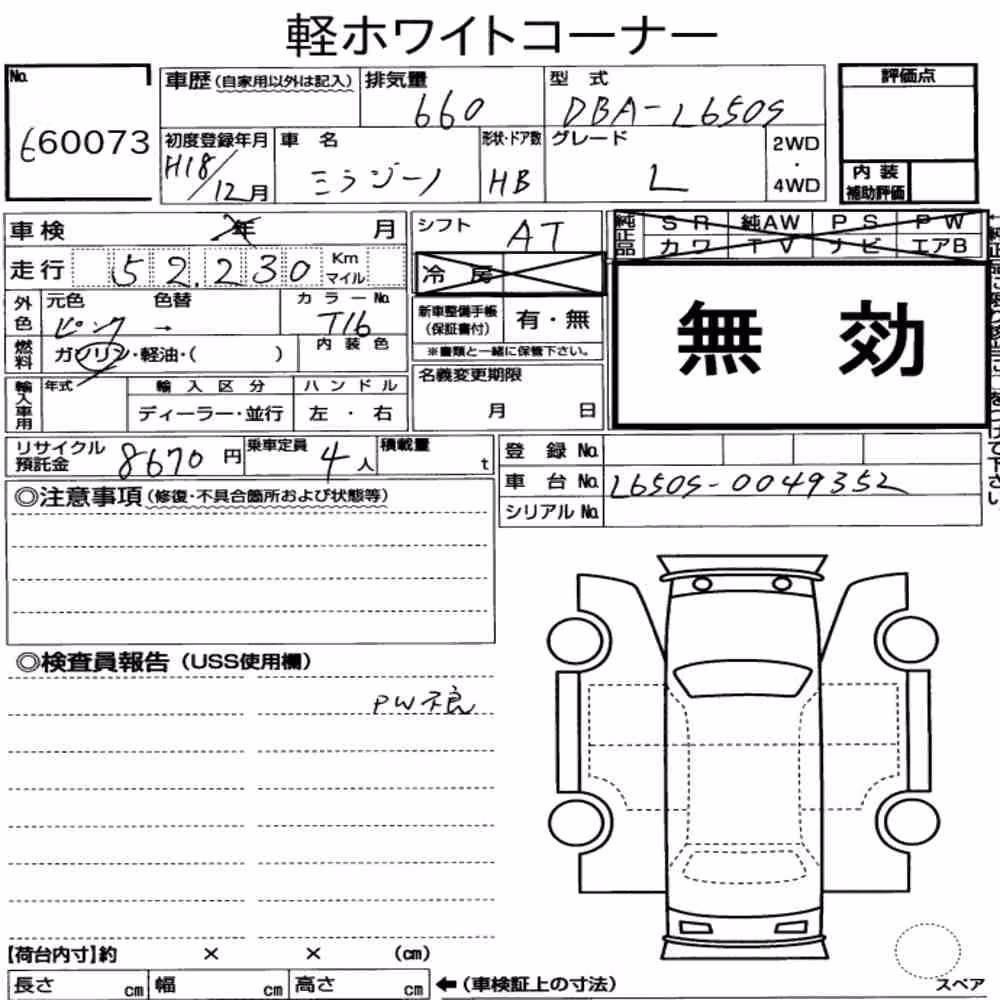 軽ホワイトコーナー
No. 660073
車歴(自家用以外は記入) 排気量 660 型式 DBA-L650S 評価点
初度登録年月 H18/12月 車名 ミラジーノ 形状・ドア数 HB グレード L 2WD・4WD
内装補助評価
車検 年 月 シフト AT 純正品 SR 純AW PS PW
カワ TV ナビ エアB
走行 52,230 Km マイル 冷房
無効
外色 元色 ピンク → 色替 カラーNo. T16 内装色
新車整備手帳(保証書付) 有・無
※書類と一緒に保管下さい。
燃料 ガソリン・軽油・( )
輸入車用 年式 輸入区分 ディーラー・並行 ハンドル 左・右
名義変更期限 月 日
リサイクル預託金 8670円 乗車定員 4人 積載量 t
登録No.
車台No. L650S-0049352
シリアルNo.
◎注意事項(修復・不具合箇所および状態等)
◎検査員報告(USS使用欄)
PW不良
【荷台内寸】約 × × (cm)
長さ cm 幅 cm 高さ cm ←(車検証上の寸法)
スペア